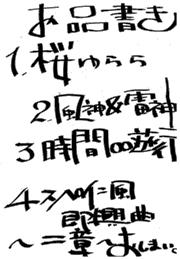 お品書き
1.桜ゆらら
2.風神&雷神
3時間∞旅行
4スペイン風
即興曲
～二章～おしまい。